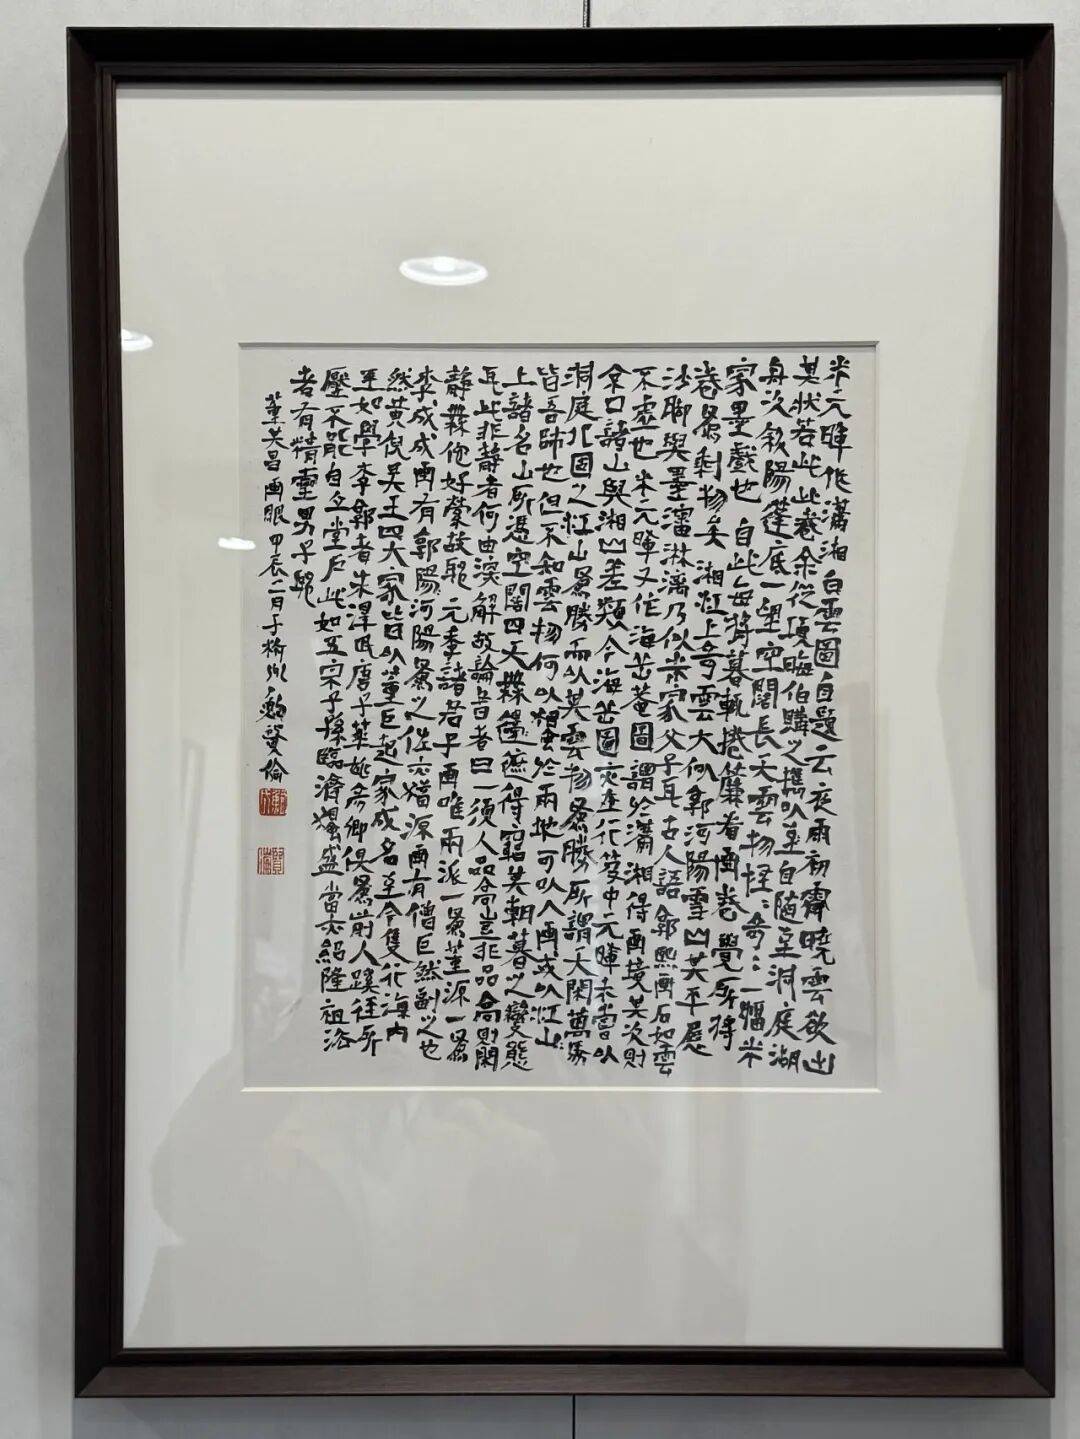 米元暉作瀟湘白雲圖自題云夜雨初霽曉雲欲出
其狀若此此卷余從項晦伯購之攜以至自隨至洞庭湖
舟次斜陽篷底一望空闊長天雲物怪怪奇奇一幅米
家墨戲也自此每將暮輒捲簾看畫卷覺所將
卷為剩物矣湘江上奇雲大似郭河陽雪山其平展
沙脚與墨瀋淋漓乃似米家父子耳古人語郭熙畫石如雲
不虛也米元暉又作海岳菴圖謂於瀟湘得畫境其次則
京口諸山與湘山差類今海岳圖亦在行笈中元暉未嘗以
洞庭北固之江山為勝而以其雲物為勝所謂天閑萬馬
皆吾師也但不知雲物何以獨於兩地可以入畫或以江山
上諸名山所憑空闊四天無遮得窮其朝暮之變態
耳此非靜者何由深解故論書者曰一須人品高豈非品高則閑
靜無他好縈故耶 元季諸君子畫唯兩派一為董源一為
李成成畫有郭河陽為之佐亦猶源畫有僧巨然副之也
然黃倪吳王四大家皆以董巨起家成名至今隻行海內
至如學李郭者朱澤民唐子華姚彥卿俱為前人蹊徑所
壓不能自立堂戶此如五宗子孫臨濟獨盛當亦紹隆祖法
者有精靈男子耶
董其昌畫眼 甲辰二月于 賢倫